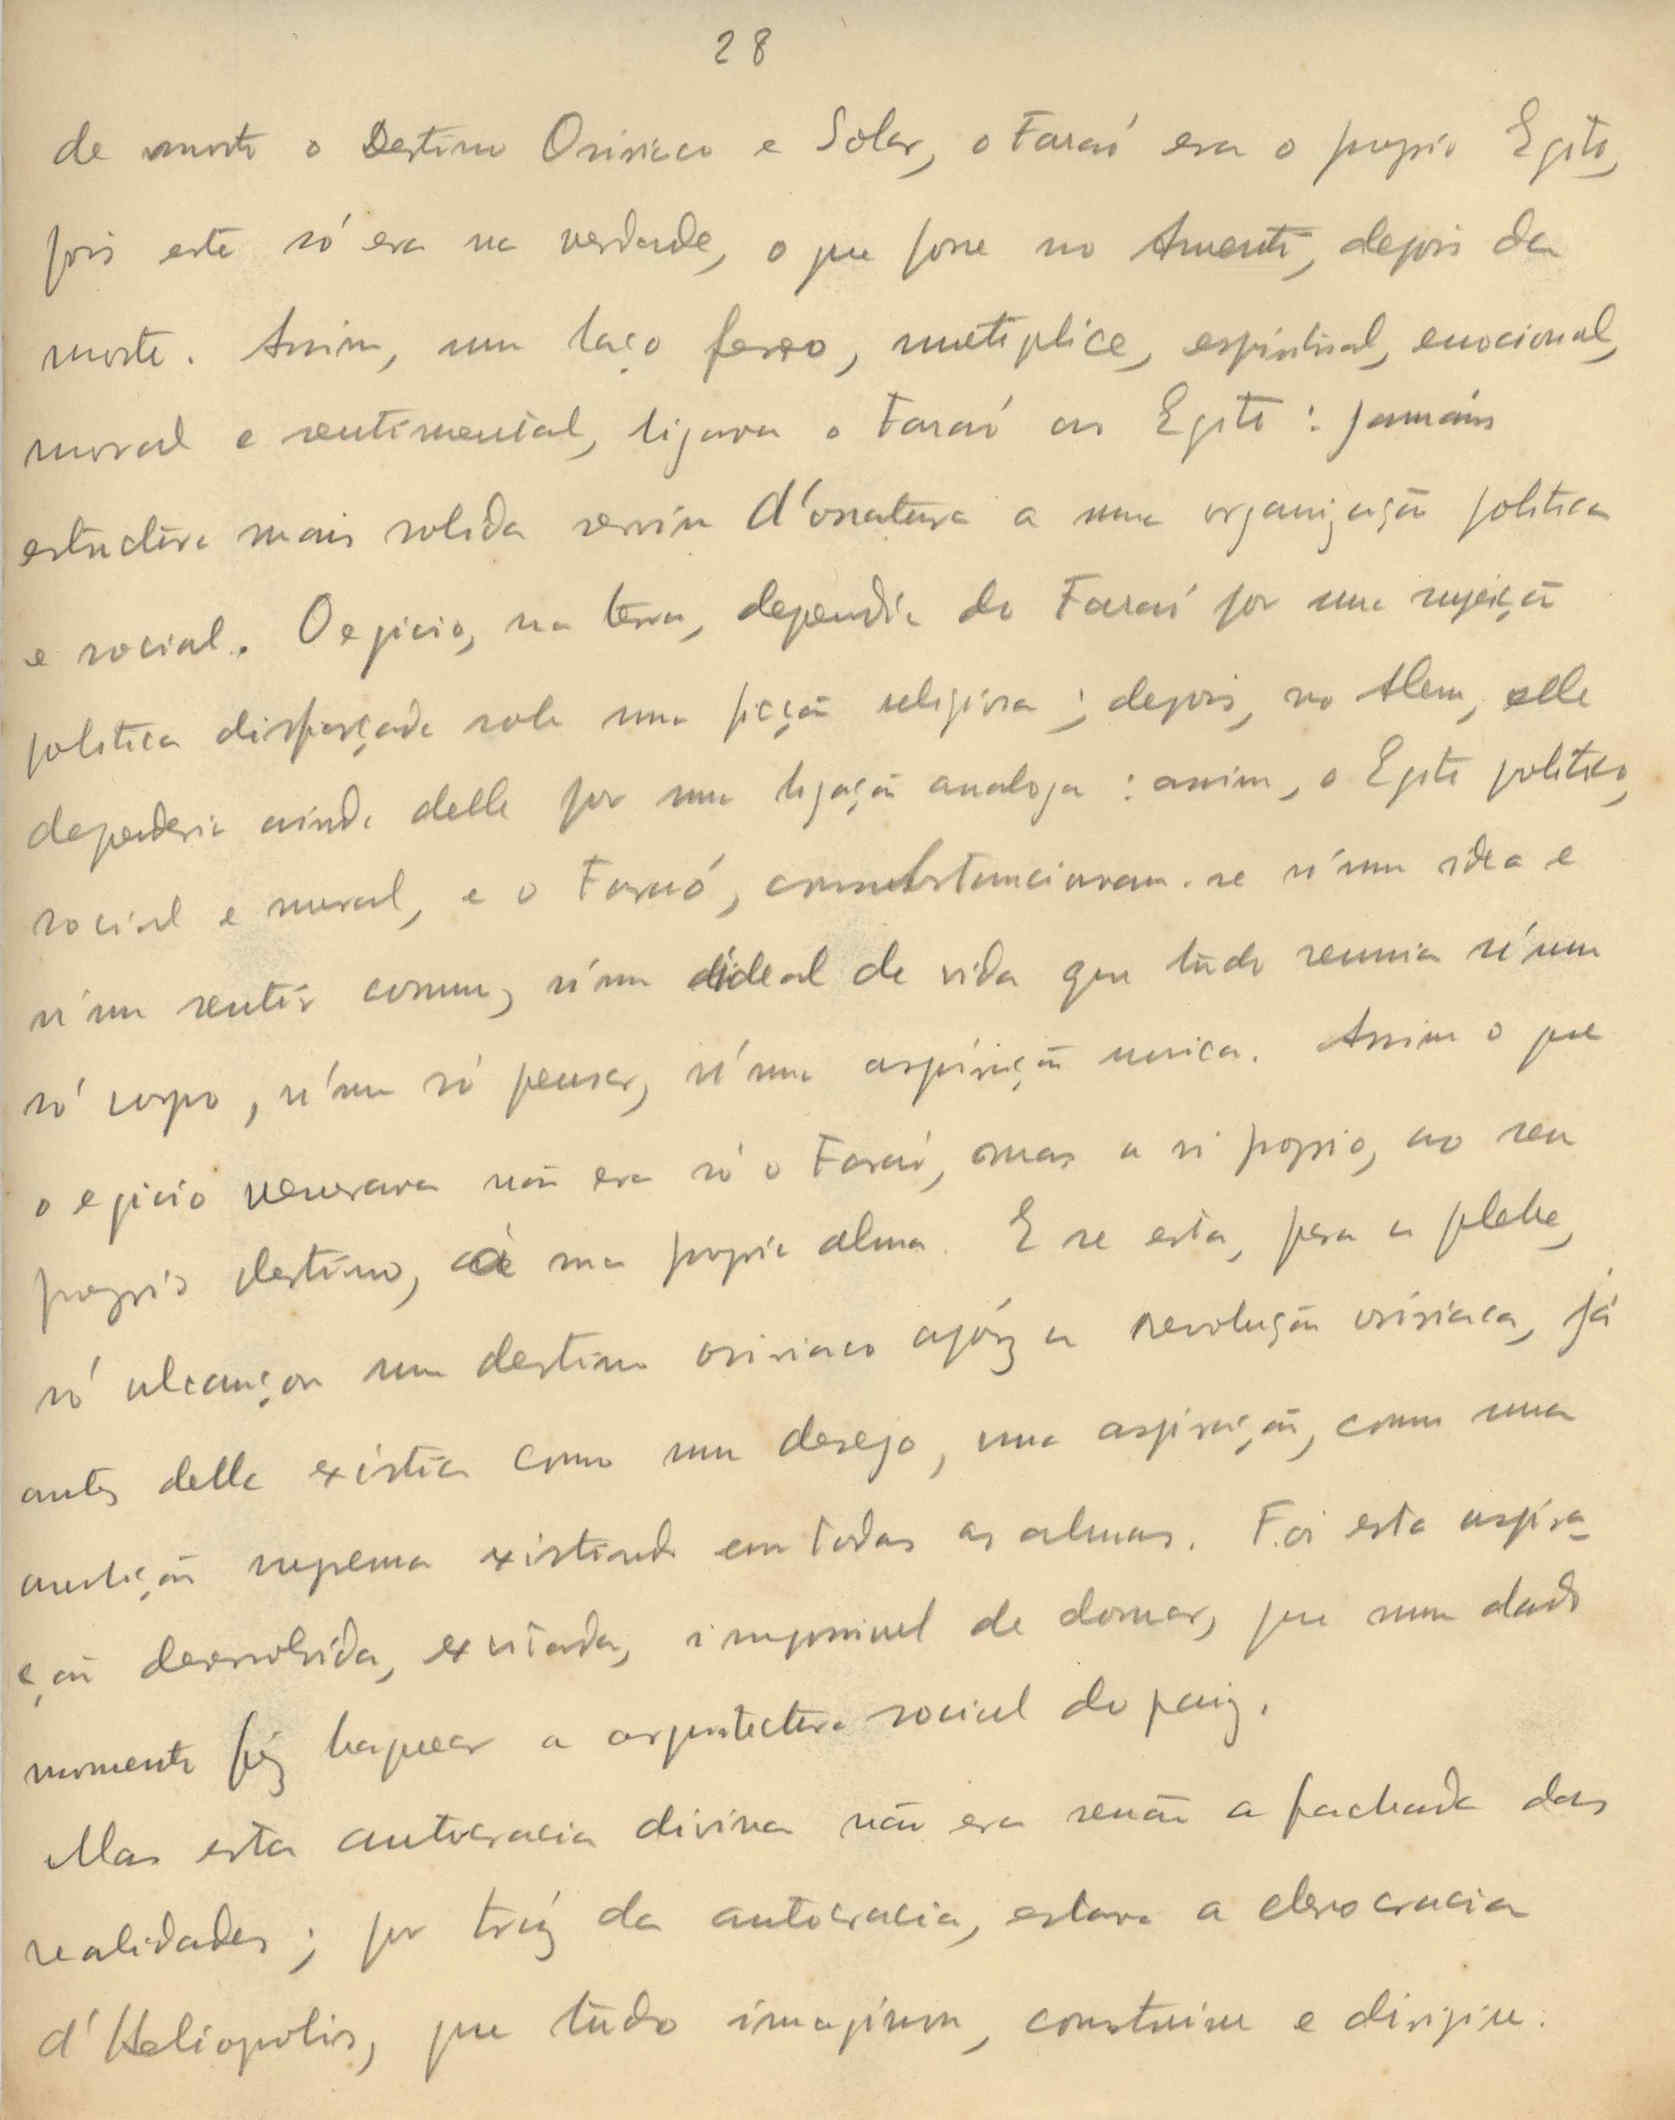 28
de morte o Destino Osiriaco e Solar, o Faraó era o proprio Egito,
pois este só era na verdade, o que fosse no Amenti, depois da
morte. Assim, um laço ferreo, multiplice, espiritual, emocional,
moral e sentimental, ligava o Faraó ao Egito: jamáis
estructura mais solida serviu d'ossatura a uma organização politica
e social. O egicio, na terra, dependia do Faraó por uma sujeição
politica disfarçada sob uma ficção religiosa; depois, no Alem, elle
dependeria ainda delle por uma ligação analoga: assim, o Egito politico,
social e moral, e o Faraó, consubstanciavam-se n'uma idea e
n'um sentir comum, n'um ideal de vida que tudo reunia n'um
só corpo, n'um só pensar, n'uma aspiração unica. Assim o que
o egicio venerava não era só o Faraó, mas a si proprio, ao seu
proprio destino, à sua propria alma. E se esta, para a plebe,
só alcançou um destino osiriaco apóz a revolução osiriaca, já
antes della existia como um desejo, uma aspiração, como uma
ambição suprema existindo em todas as almas. Foi esta aspira-
ção desenvolvida, excitada, impossivel de domar, que num dado
momento fêz baquear a arquitectura social do paiz.
Mas esta autocracia divina não era senão a fachada das
realidades; por tráz da autocracia, estava a clerocracia
d'Heliopolis, que tudo imaginou, construiu e dirigiu.